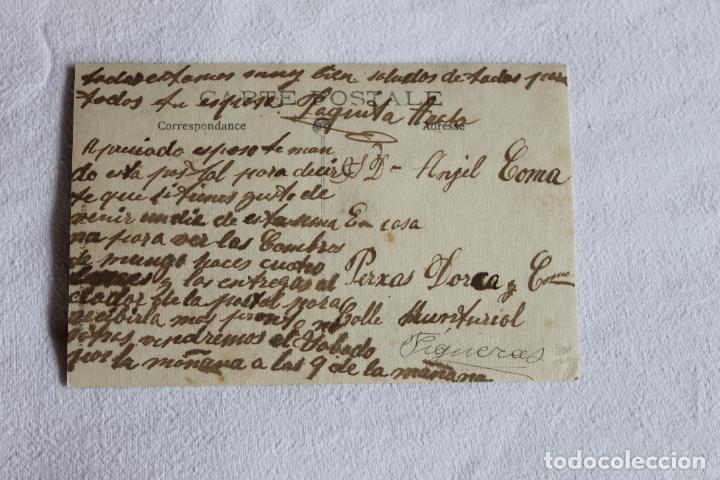 todos estamos muy bien saludos de todos para
todos tu esposa Paquita
CARTE POSTALE
Correspondance
Adresse
Apreciado esposo te man
do esta postal para decir
te que si tienes gusto de
venir un dia de esta sema
na para ver las Combras
de mango haces cuatro
y los entregas al
de la postal para
recibirla mas pronto
vendremos el Sabado
por la mañana a las 9 de la mañana
Sr D- Anjel Coma
En casa
Perxas Dorca y Comp
Calle Munturiol
Figueras
todocoleccion